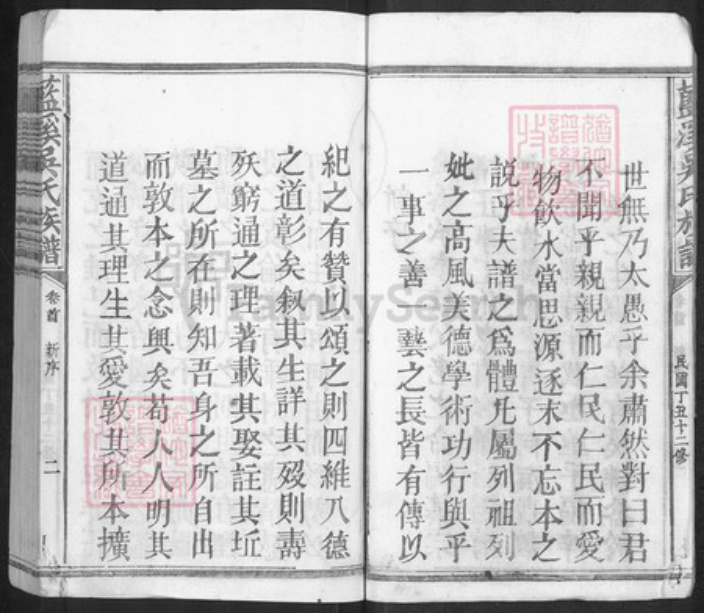 藍溪吳氏族譜
民國丁丑十二修
世無乃太愚乎余肅然對曰君
不聞乎親親而仁民仁民而愛
物飲水當思源逐末不忘本之
說乎夫譜之爲體凡屬列祖列
妣之高風美德學術功行與乎
一事之善一藝之長皆有傳以
紀之有贊以頌之則四維八德
之道彰矣叙其生詳其歿則壽
殀窮通之理著載其娶註其坵
墓之所在則知吾身之所自出
而敦本之念興矣苟人人明其
道通其理生其愛敦其所本擴
藍溪吳氏族譜
卷首 新序
二
FamilySearch